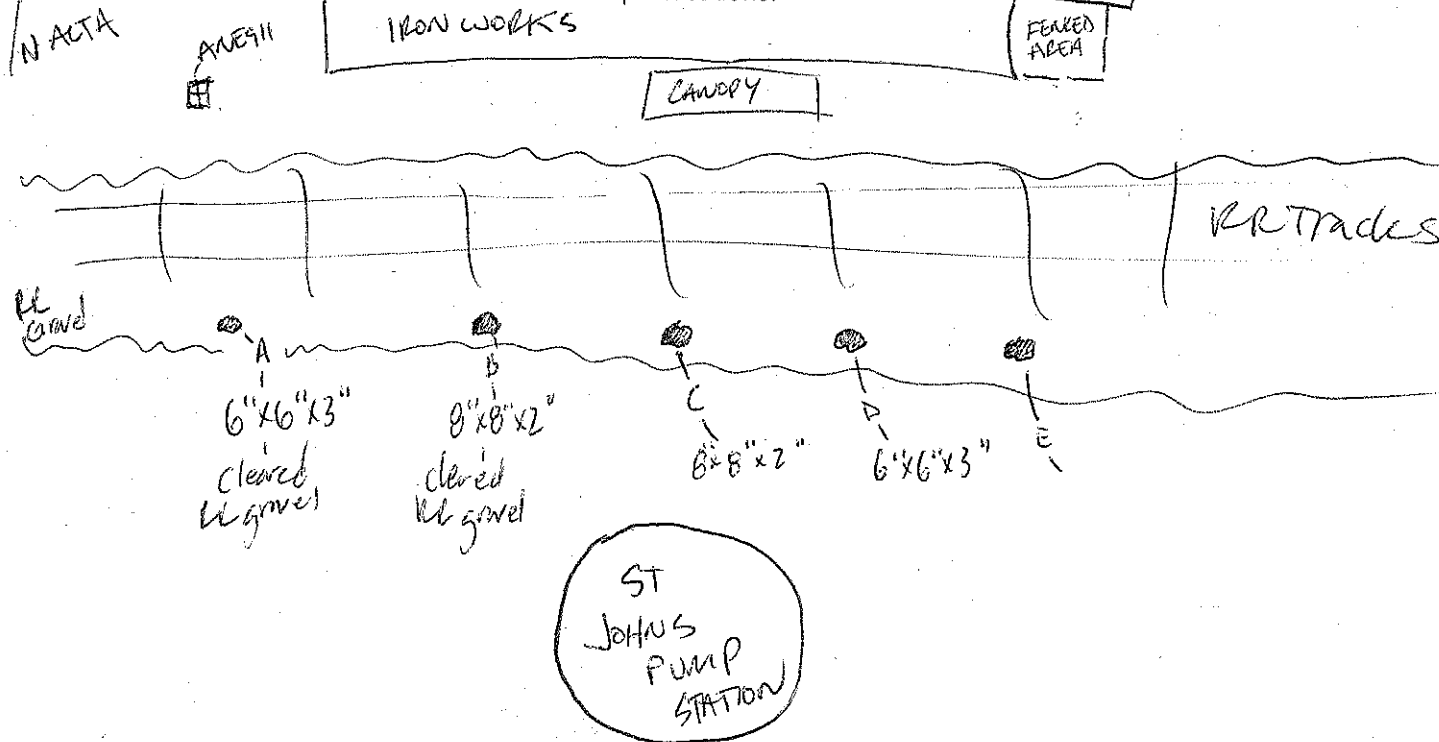 N ALTA
ANE911
IRON WORKS
FENCED
AREA
CANOPY
RR Tracks
RR
Gravel
A
B
C
D
E
6"x6"x3"
cleared
RR gravel
8"x8"x2"
clered
RR gravel
8"x8"x2"
6"x6"x3"
ST
JOHNS
PUMP
STATION